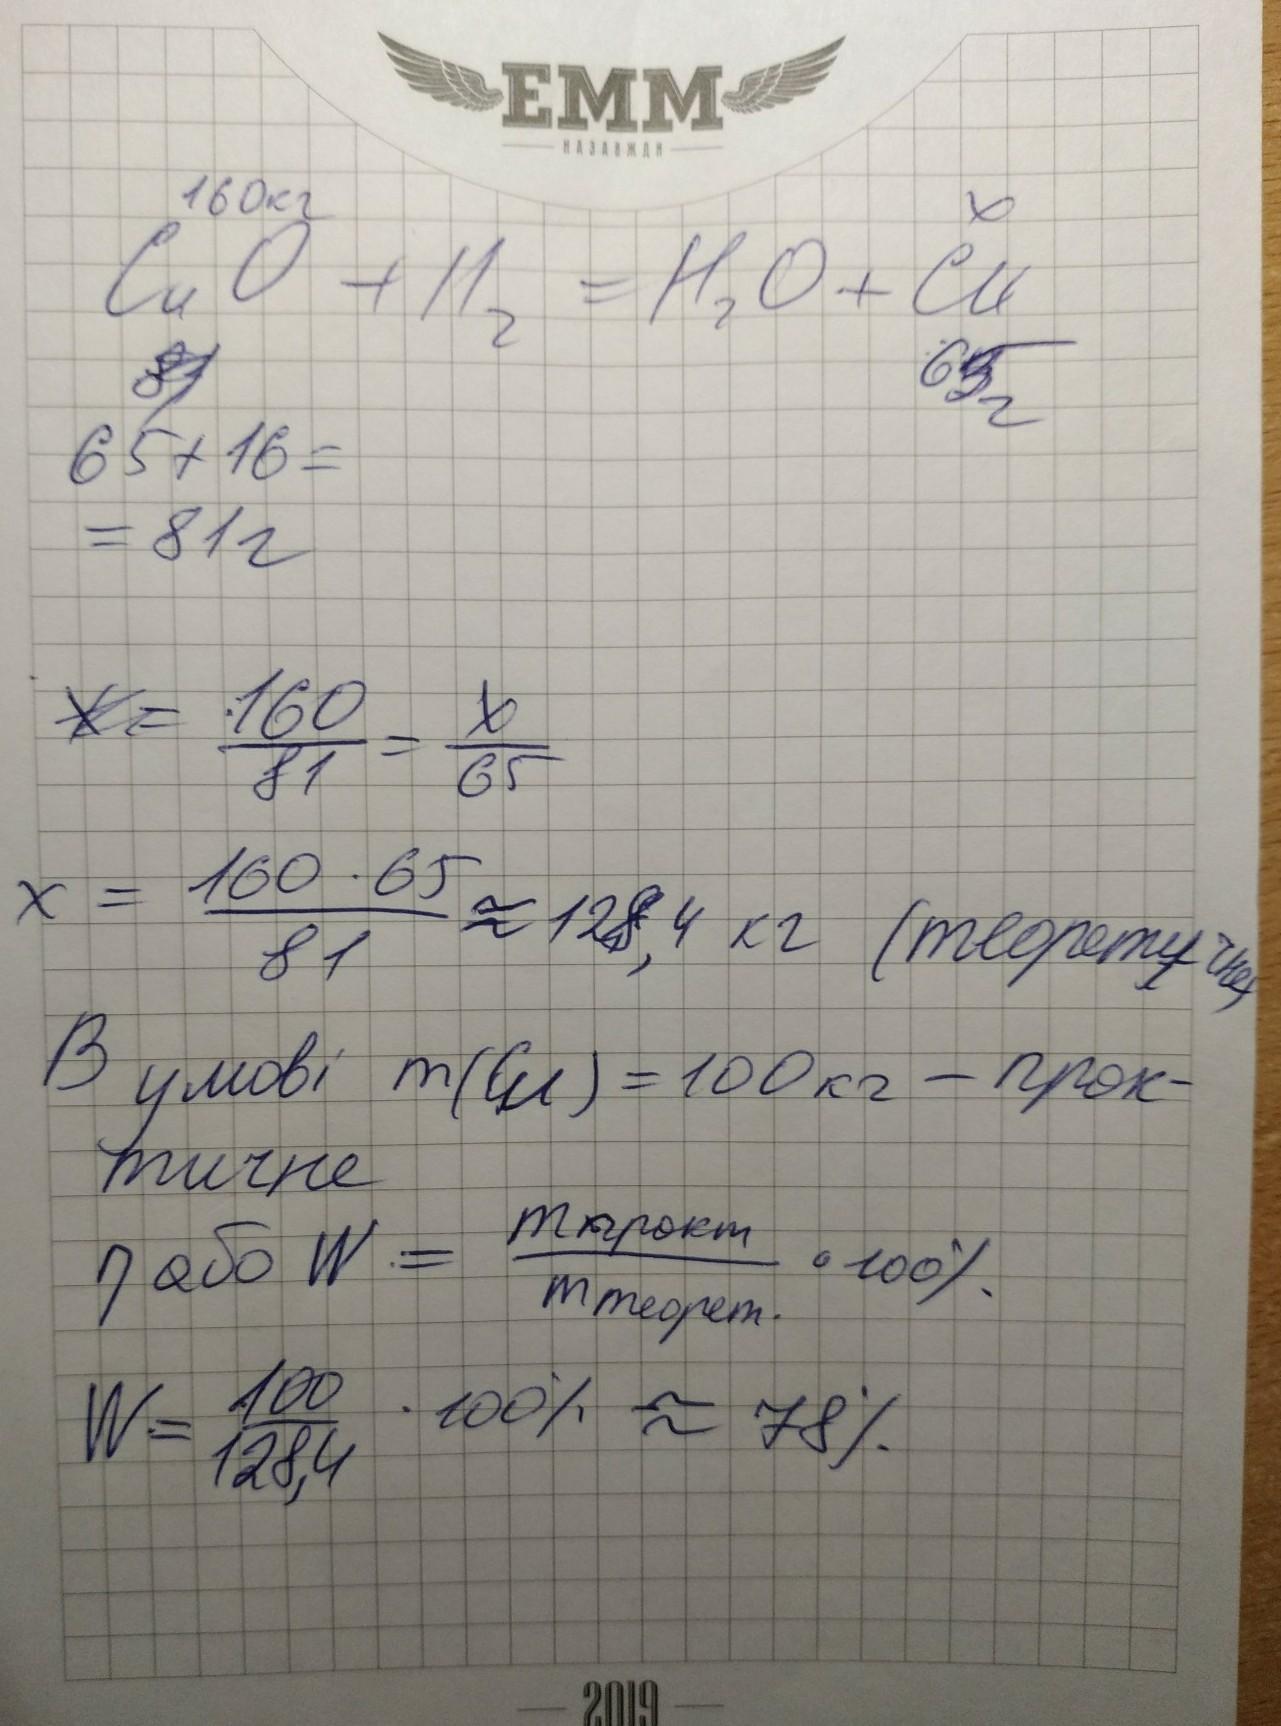 EMM
НАЗАВЖДИ
160кг x
CuO + H2 = H2O + Cu
65г
65+16=
=81г
x= 160/81 = x/65
x = 160 · 65/81 ≈ 128,4 кг (теоретичне)
В умові m(Cu) = 100кг – прак-
тичне
η або W = m практ/m теорет. · 100%.
W = 100/128,4 · 100% ≈ 78%.
2019